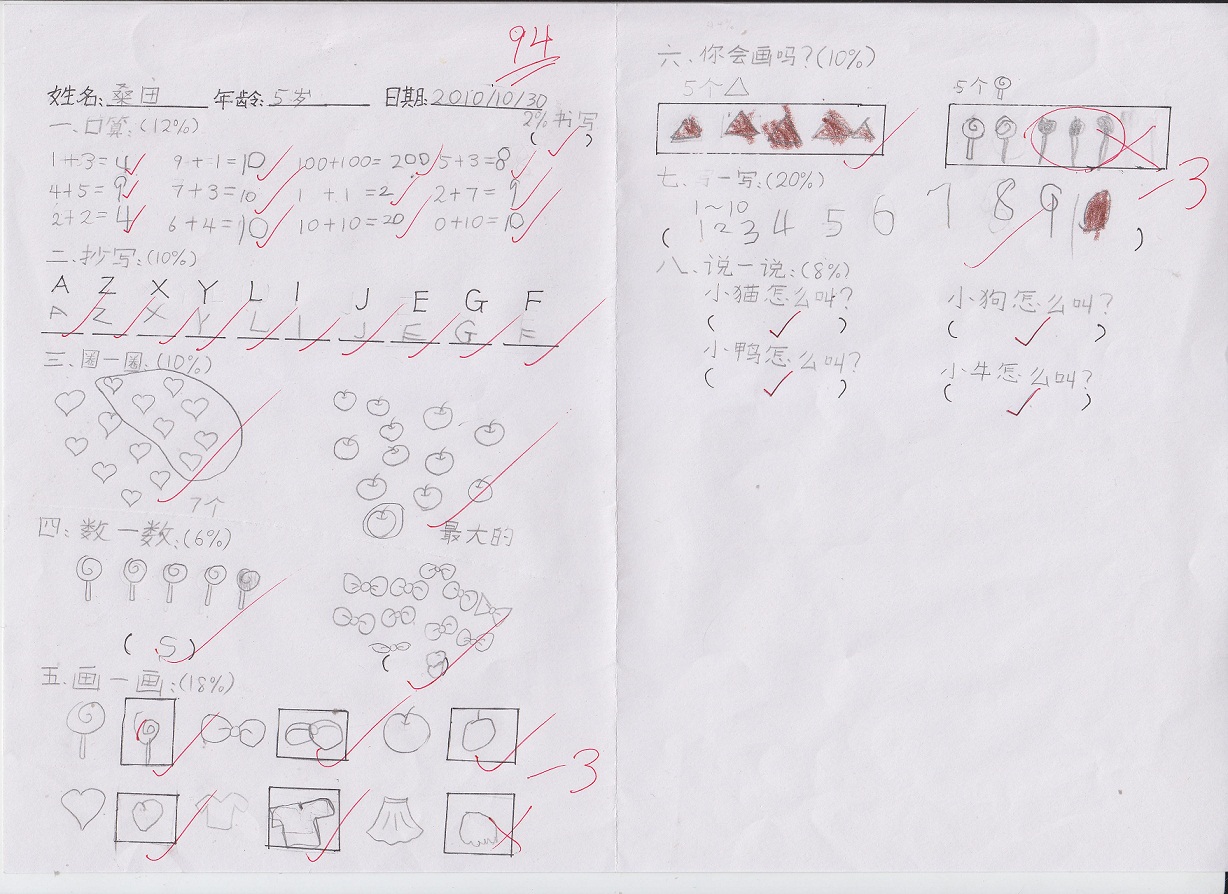 94
姓名:桑田 年龄:5岁 日期:2010/10/30
一、口算:(12%) 2%书写
( )
1+3=4 9+1=10 100+100=200 5+3=8
4+5=9 7+3=10 1+1=2 2+7=9
2+2=4 6+4=10 10+10=20 0+10=10
二、抄写:(10%)
A Z X Y L I J E G F
A Z X Y L I J E G F
三、圈一圈:(10%)
7个 最大的
四、数一数:(6%)
(5) ( )
五、画一画:(18%)
-3
六、你会画吗?(10%)
5个△ 5个
-3
七、写一写:(20%)
1~10
(1 2 3 4 5 6 7 8 9 10)
八、说一说:(8%)
小猫怎么叫? 小狗怎么叫?
( ) ( )
小鸭怎么叫? 小牛怎么叫?
( ) ( )